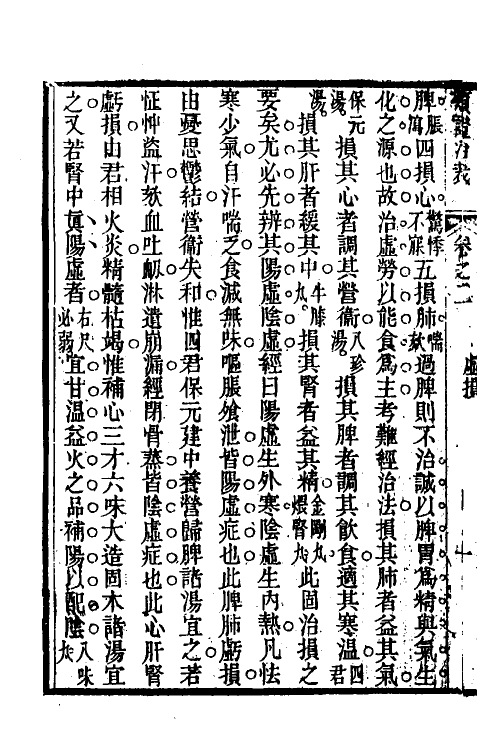 類證治裁 卷之二 虛損 十
脾脹瀉四損心驚悸不寐五損肺喘欬過脾則不治誠以脾胃為精與氣生
化之源也故治虛勞以能食為主考難經治法損其肺者益其氣
保元湯損其心者調其營衛八珍湯損其脾者調其飲食適其寒溫四君
湯損其肝者緩其中牛膝丸損其腎者益其精金剛丸煨腎丸此固治損之
要矣尤必先辨其陽虛陰虛經曰陽虛生外寒陰虛生內熱凡怯
寒少氣自汗喘乏食減無味嘔脹飧泄皆陽虛症也此脾肺虧損
由憂思鬱結營衛失和惟四君保元建中養營歸脾諸湯宜之若
怔忡盜汗欬血吐衄淋遺崩漏經閉骨蒸皆陰虛症也此心肝腎
虧損由君相火炎精髓枯竭惟補心三才六味大造固本諸湯宜
之又若腎中真陽虛者右尺必弱宜甘溫益火之品補陽以配陰八味丸